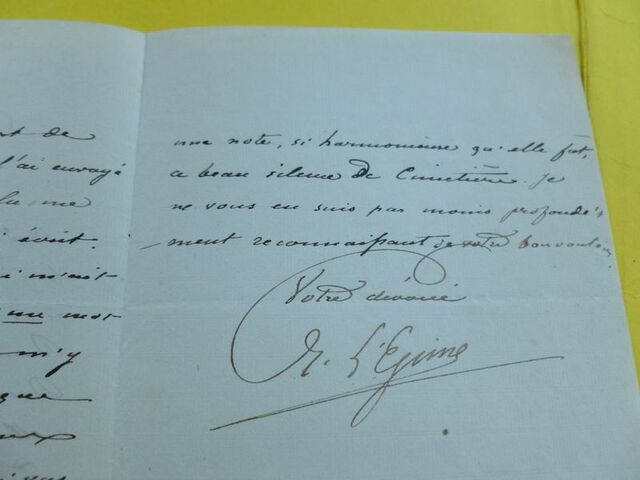 de
l'ai envoyé
me
écrit.
m'eût
un mot
m'y
que
une note, si harmonieuse qu'elle fût,
ce beau silence de Cimetière. Je
ne vous en suis pas moins profondé-
ment reconnaissant de votre bon vouloir
Votre dévoué